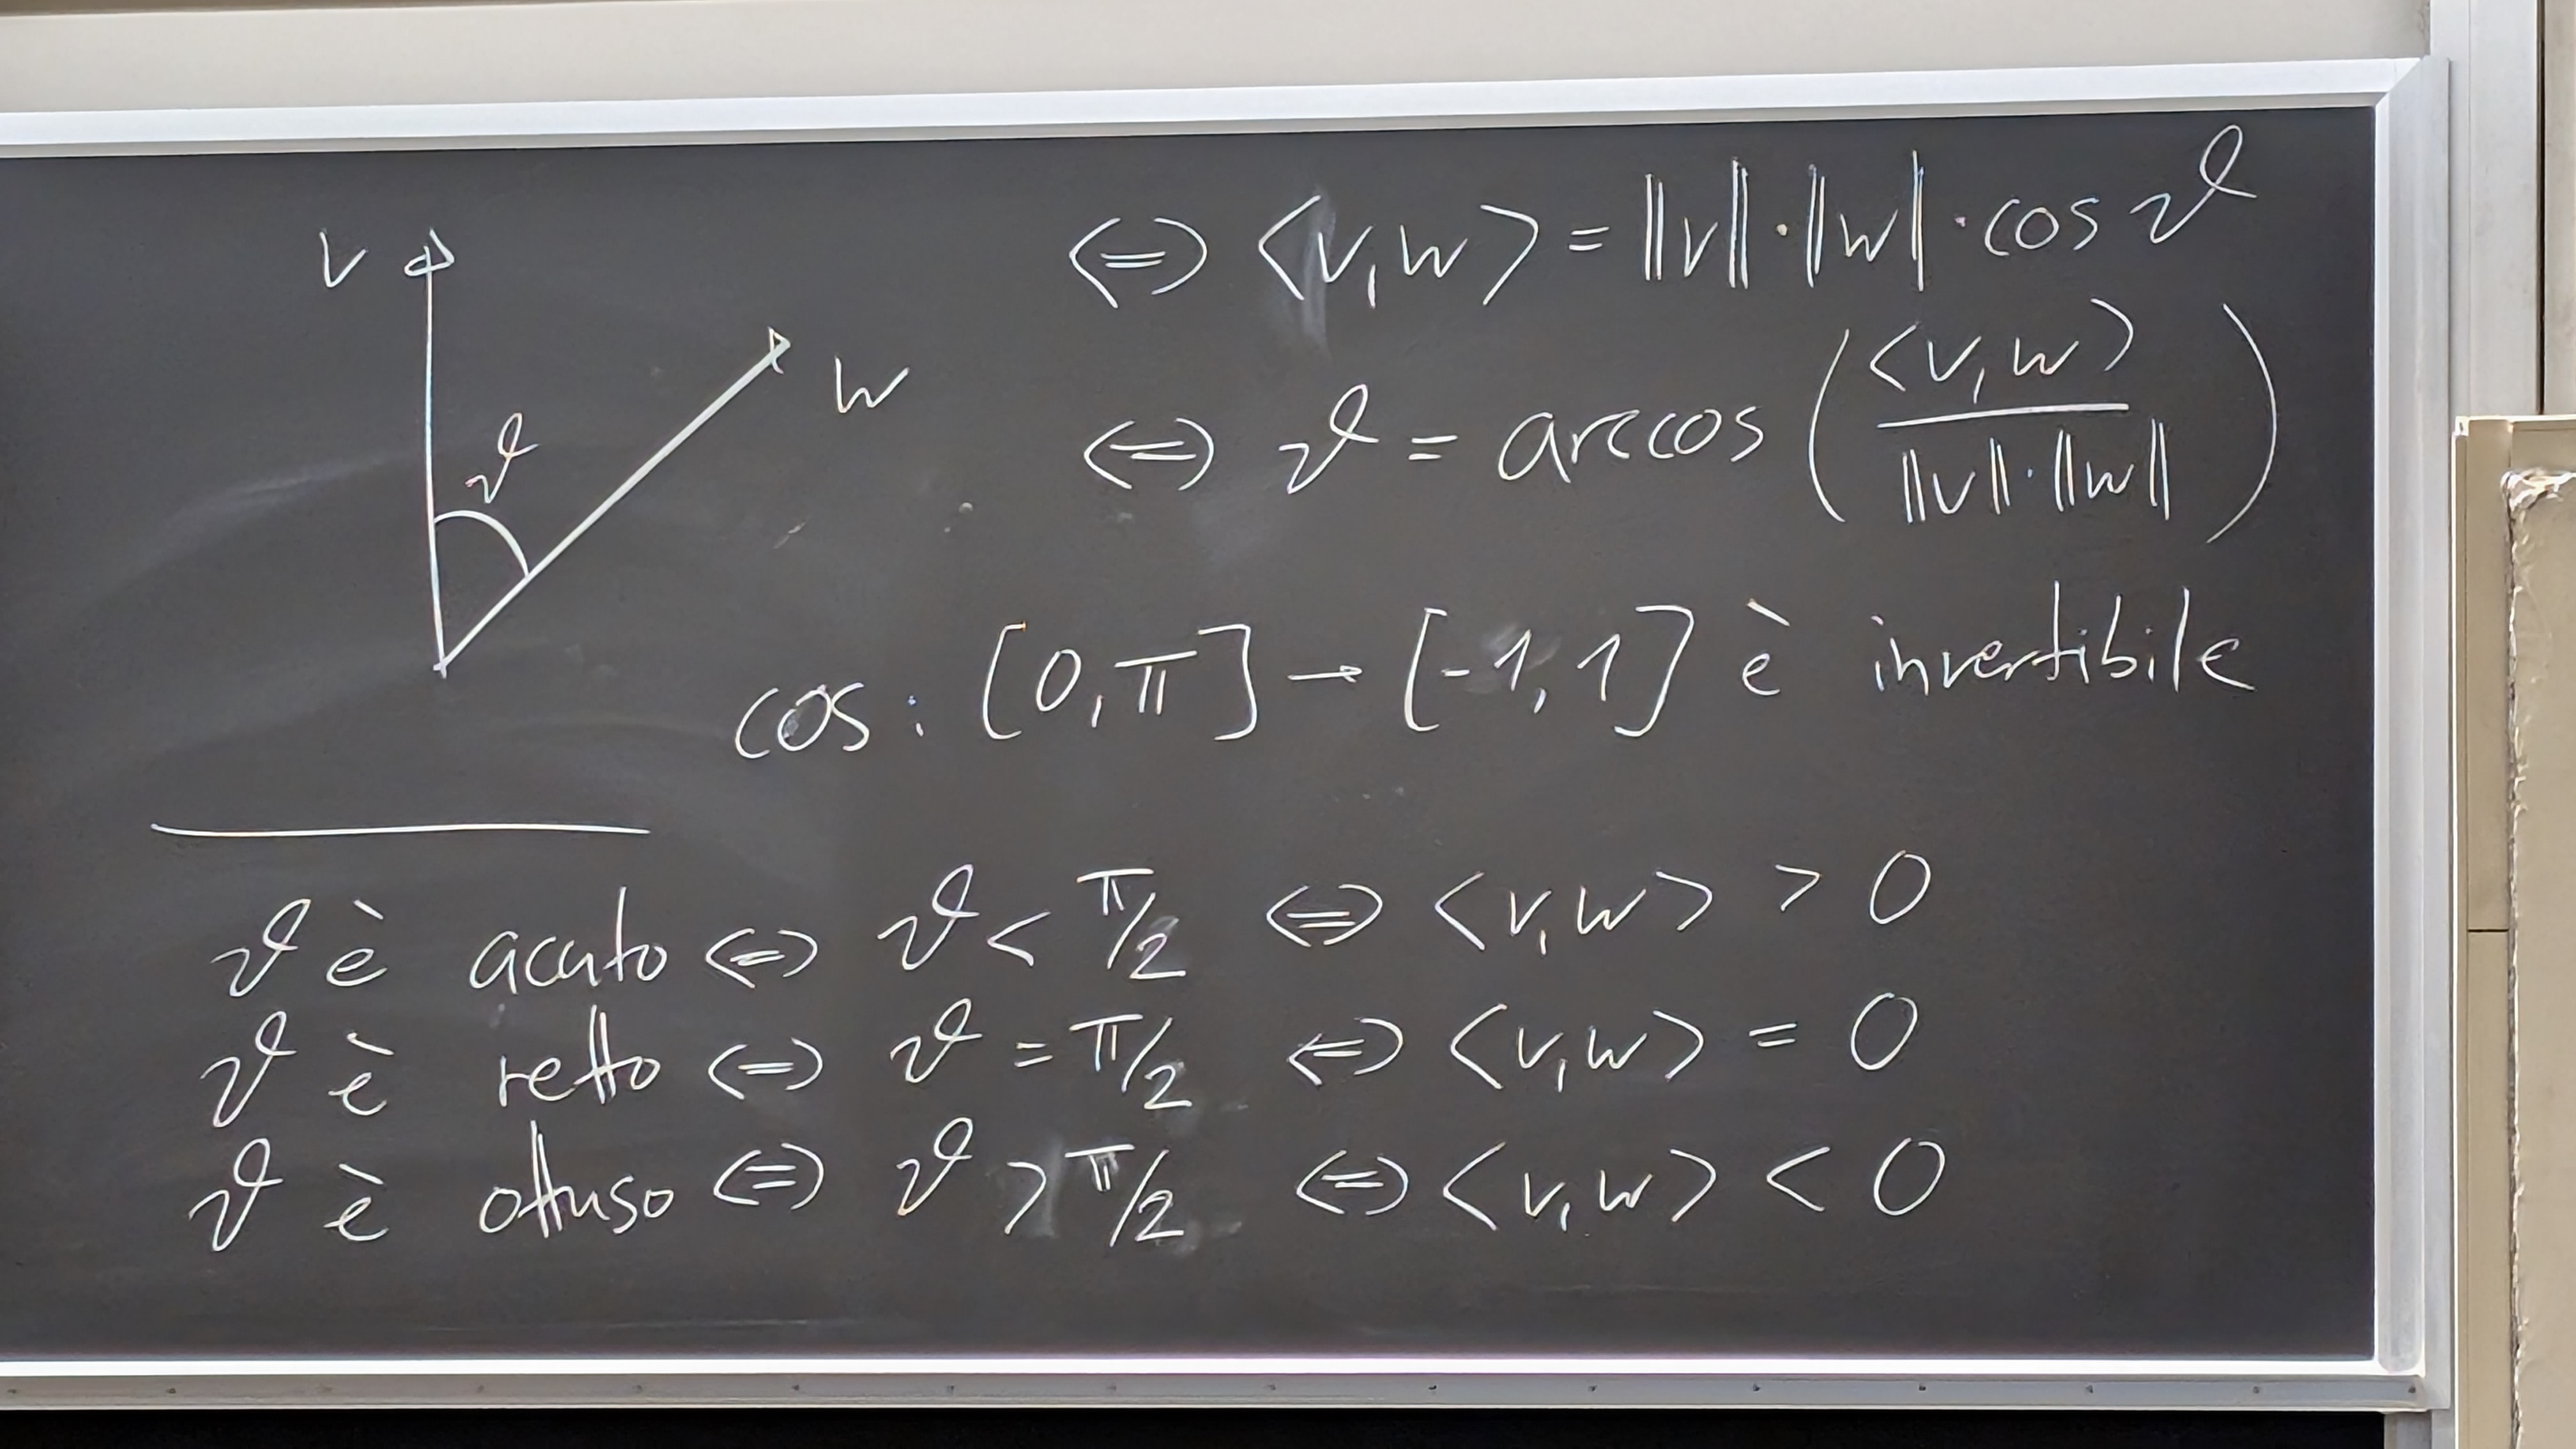 v
w
ϑ
⇔ <v,w> = ||v||·||w|·cos ϑ
⇔ ϑ = arccos ( <v,w> / ||v||·||w|| )
cos : [0,π] → [-1,1] è invertibile
ϑ è acuto ⇔ ϑ < π/2 ⇔ <v,w> > 0
ϑ è retto ⇔ ϑ = π/2 ⇔ <v,w> = 0
ϑ è ottuso ⇔ ϑ > π/2 ⇔ <v,w> < 0